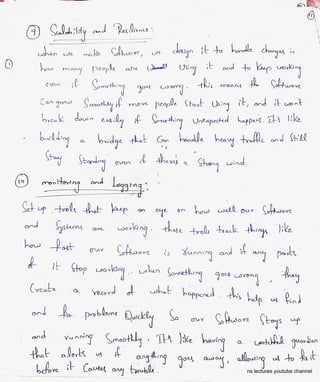 ⑨ Scalability and Resilience:
when we make Software, we design it to handle changes in
how many people are Using it and to keep working
even if Something goes wrong. this means the Software
Can grow Smoothly if more people Start Using it, and it won't
break down easily if Something Unexpected happens. It's like
building a bridge that Can handle heavy traffic and Still
Stay Standing even if there's a Strong wind.
⑩ monitoring and Logging:
Set up tools that keep an eye on how well our Software
and Systems are working. these tools track things like
how fast our Software is running and if any parts
of it Stop working. when Something goes wrong, they
Create a record of what happened. this help us find
and fix problems Quickly So our Software Stays up
and running Smoothly. It's like having a watchful guardian
that alerts us if anything goes away, allowing us to fix it
before it Causes any trouble.
ns lectures youtube channel